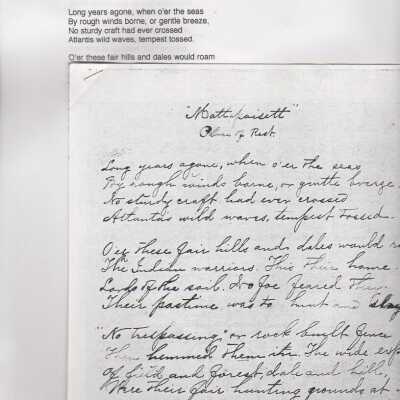 Long years agone, when o'er the seas
By rough winds borne, or gentle breeze,
No sturdy craft had ever crossed
Atlantis wild waves, tempest tossed.
O'er these fair hills and dales would roam
"Mattapaisett"
Place of Rest.
Long years agone, when o'er the seas
By rough winds borne, or gentle breeze
No sturdy craft had ever crossed
Atlantas wild waves, tempest tossed.
O'er these fair hills and dales would
The Indian warriors. This their home.
Lords of the soil. No foe feared they
Their pastime was to hunt and slay
"No Trespassing" or rock built fence
hemmed them in. The wide
Of field and forest, dale and hill
Were their fair hunting grounds at